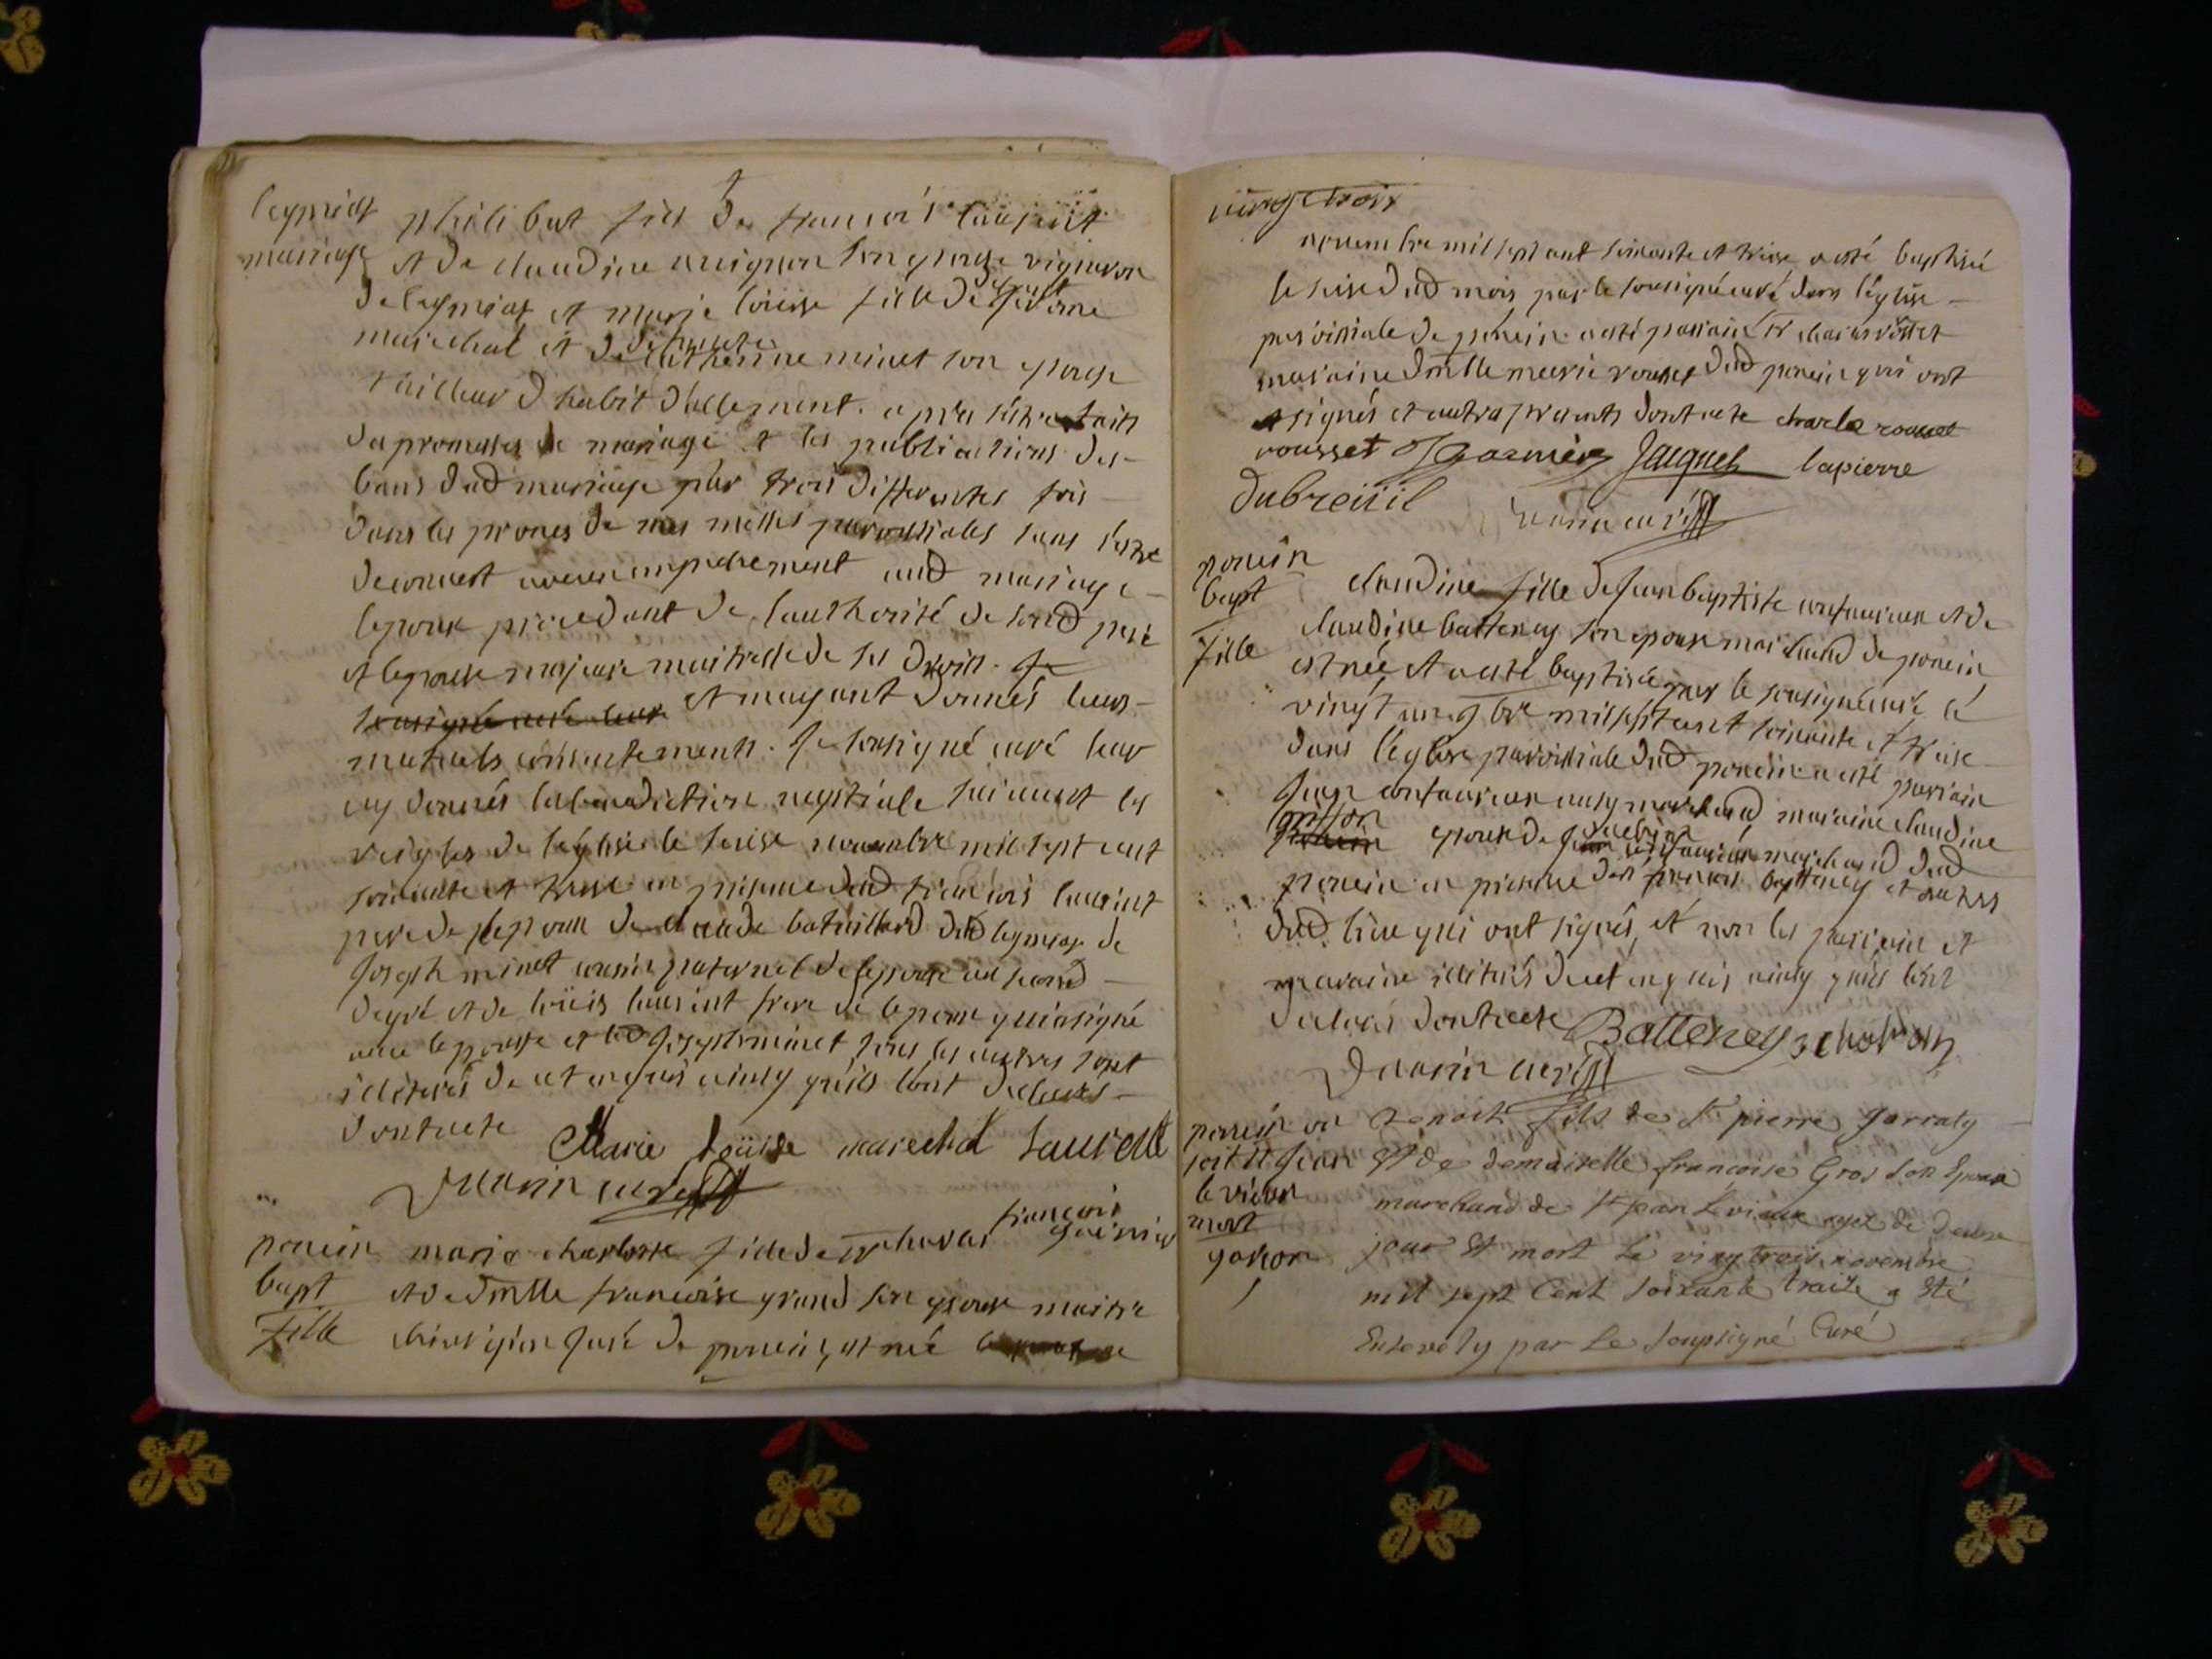 leymiat
mariage
philibert fils de françois laurent
et de claudine son epouse vigneron
de leymiat et marie louise fille de
defunte
marechal et de catherine minet son epouse
tailleur d'habit d'allement. apres
des promesses de mariage et les publications des
bans dud mariage par trois differentes fois
dans les prones de mes messes paroissiales sans s'estre
decouvert aucun empechement aud mariage
lepoux procedant de l'authorité de sond pere
et lepouse majeure maitresse de ses droits. Je
soussigné curé leur et mayant donnés leurs
mutuels consentements. Je soussigné curé leur
ay donnés la benediction nuptiale suivant les
reigles de leglise le seise novembre mil sept cent
soixante et treise en presence dud françois laurint
pere de lepoux de claude bataillard dud leymiat de
joseph minet cousin paternel de lepouse au second
degré et de loüis laurint frere de lepoux qui a signé
avec lepouse et led joseph minet tous les autres sont
illiterés de ce enquis ainsy quils l'ont declarés
dont acte Marie Loüise marechal Laurent
curé
poncin
bapt
fille
françois
marie charlotte fille de
et de dmlle francoise grand son epouse maitre
chirurgien juré de poncin, est née
vingt trois
novembre mil sept cent soixante et treise a esté baptisée
le seise dud mois par le soussigné curé dans léglise
paroissiale de poncin a esté parrain sr charles rousset
maraine dmlle marie rousset dud poncin qui ont
signés et autres presents dont acte charle rousset
rousset Jgarnier Jaquet lapierre
dubreüil
curé
poncin
bapt
fille
claudine fille de jean baptiste et de
claudine batteney son epouse marchand de poncin
est née et a esté baptisée par le soussigné curé le
vingt un 9bre mil sept cent soixante et treise
dans l'eglise paroissiale dud poncin a esté parrain
Jean aussy marchand maraine claudine
poncin epouse de jean marchand dud
poncin en presence de françois batteney et autres
dud lieu qui ont signés, et non les parrain et
maraine illiterés de ce enquis ainsy quils l'ont
declarés dont acte Batteney
curé
poncin ou
st Jean
le vieux
mort
garson
Benoit fils de Sr pierre garraty
Et de demoiselle francoise Gros son Epouse
marchand de St jean Levieux agé de deux
jour Et mort Le vingtrois novembre
mil sept Cent soixante traize a Eté
Ensevely par Le soupsigné Curé